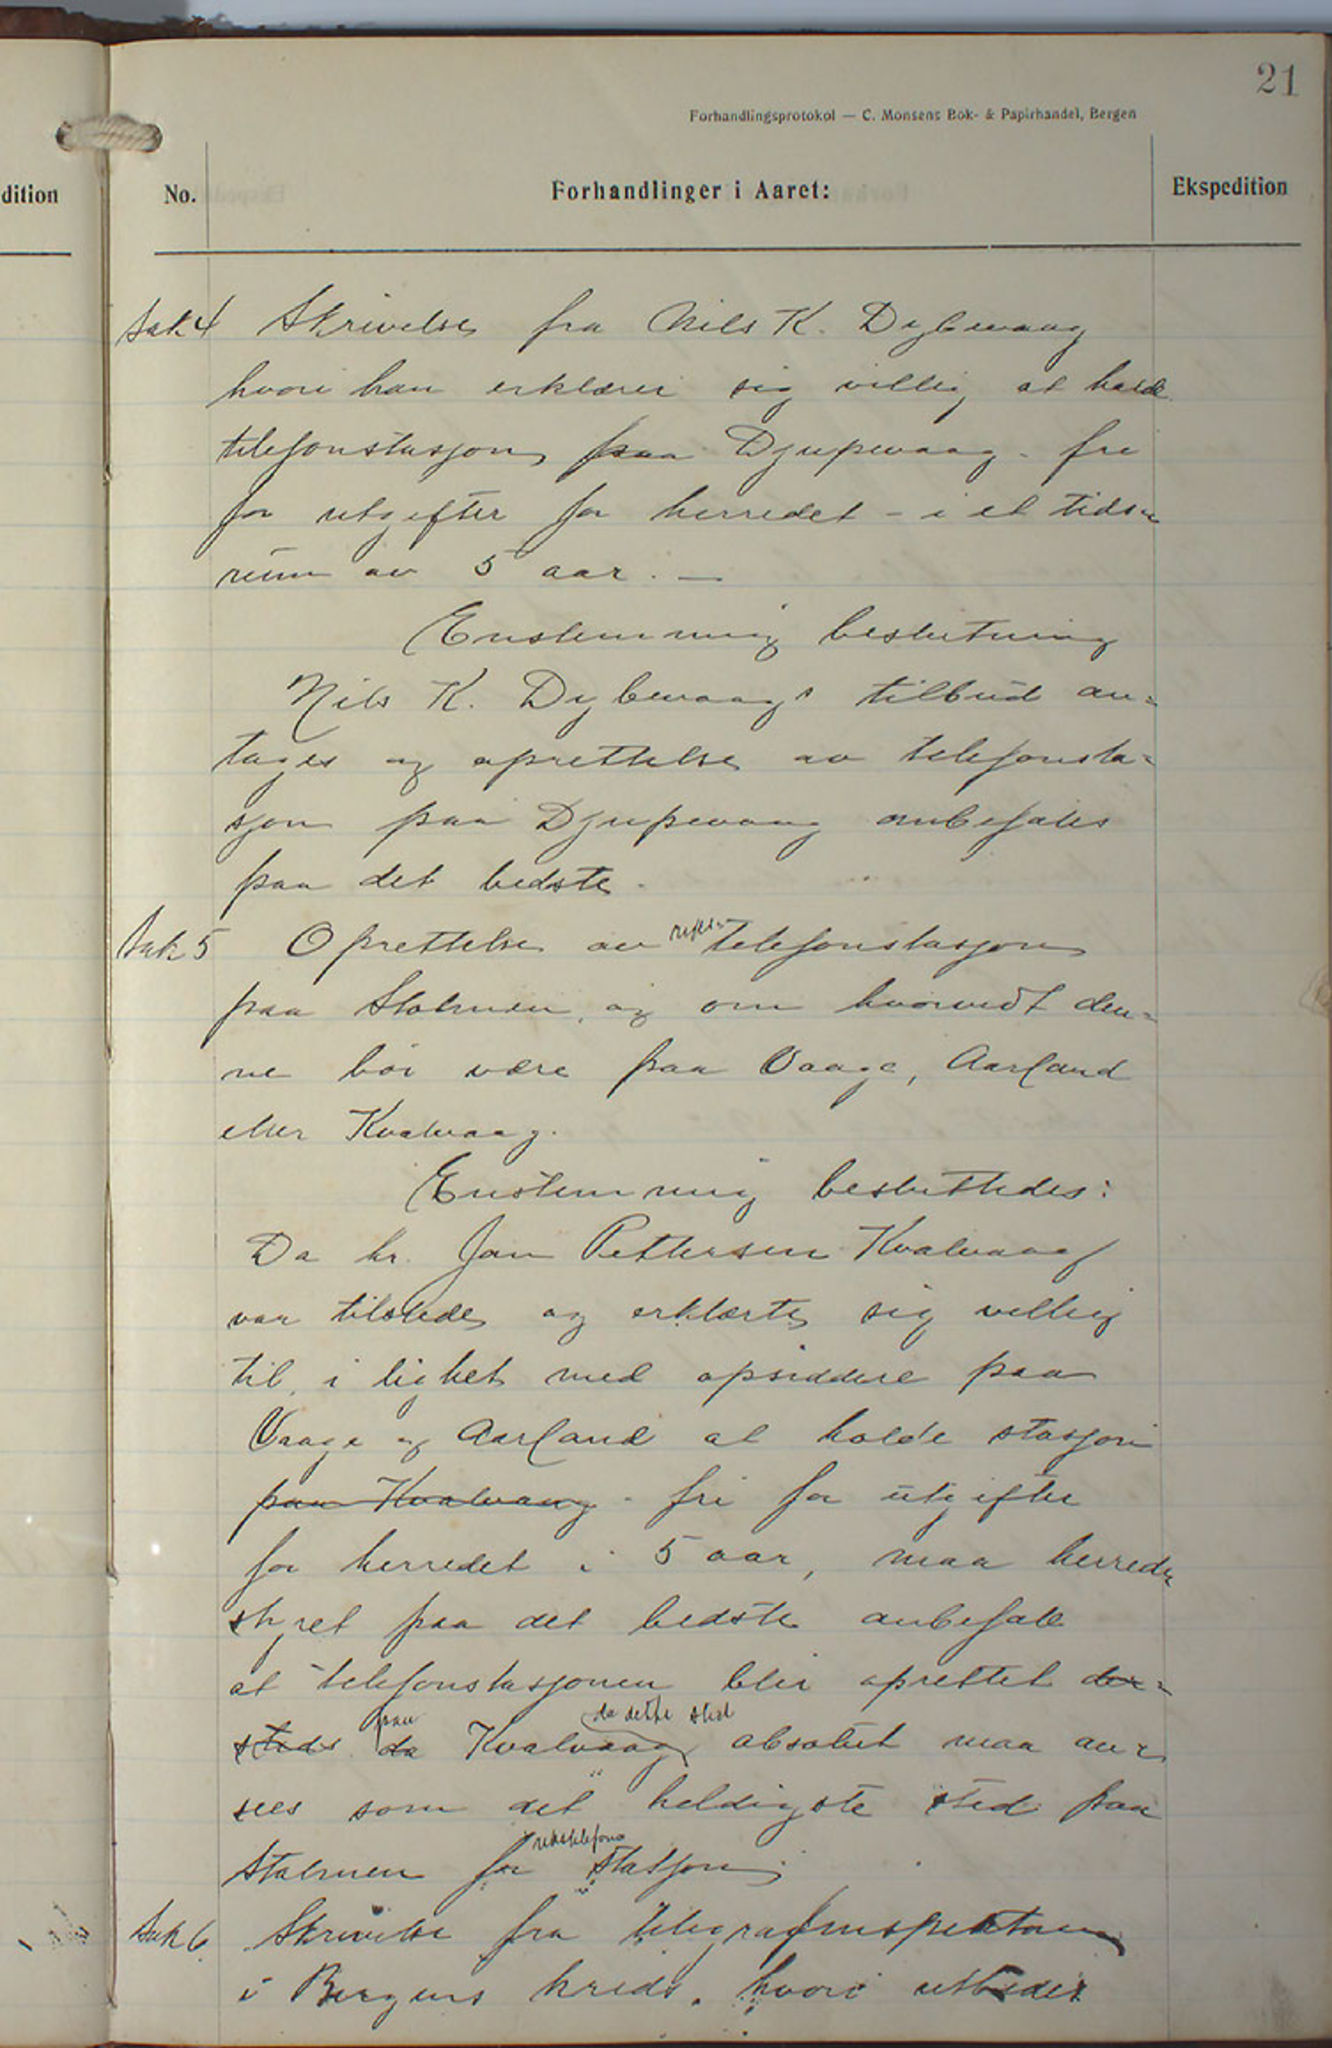 21
Forhandlingsprotokol — C. Monsens Bok- & Papirhandel, Bergen
dition
No.
Forhandlinger i Aaret:
Ekspedition
Sak 4 Skrivelse fra Nils K. Dybevaag
hvori han erklærer sig villig at holde
telefonstasjon paa Djupevaag - fri
for utgifter for herredet - i et tids-
rum av 5 aar. —
Enstemmig beslutning
Nils K. Dybevaags tilbud an-
tages og oprettelse av telefonsta-
sjon paa Djupevaag anbefales
paa det bedste.
Sak 5 Oprettelse av riks- telefonstasjon
paa Stolmen, og om hvorvidt den-
ne bør være paa Vaage, Aarland
eller Kvalvaag.
Enstemmig besluttedes:
Da hr. Jan Pettersen Kvalvaag
var tilstede og erklærte sig villig
til, i lighet med opsiddere paa
Vaage og Aarland at holde stasjon
paa Kvalvaag - fri for utgifter
for herredet i 5 aar, maa herreds-
styret paa det bedste anbefale
at telefonstasjonen blir oprettet der-
steds da paa Kvalvaag da dette sted absolut maa an-
sees som det heldigste sted paa
Stolmen for rikstelefon stasjon.
Sak 6 Skrivelse fra telegrafinspektøren
i Bergens kreds, hvori utbedes